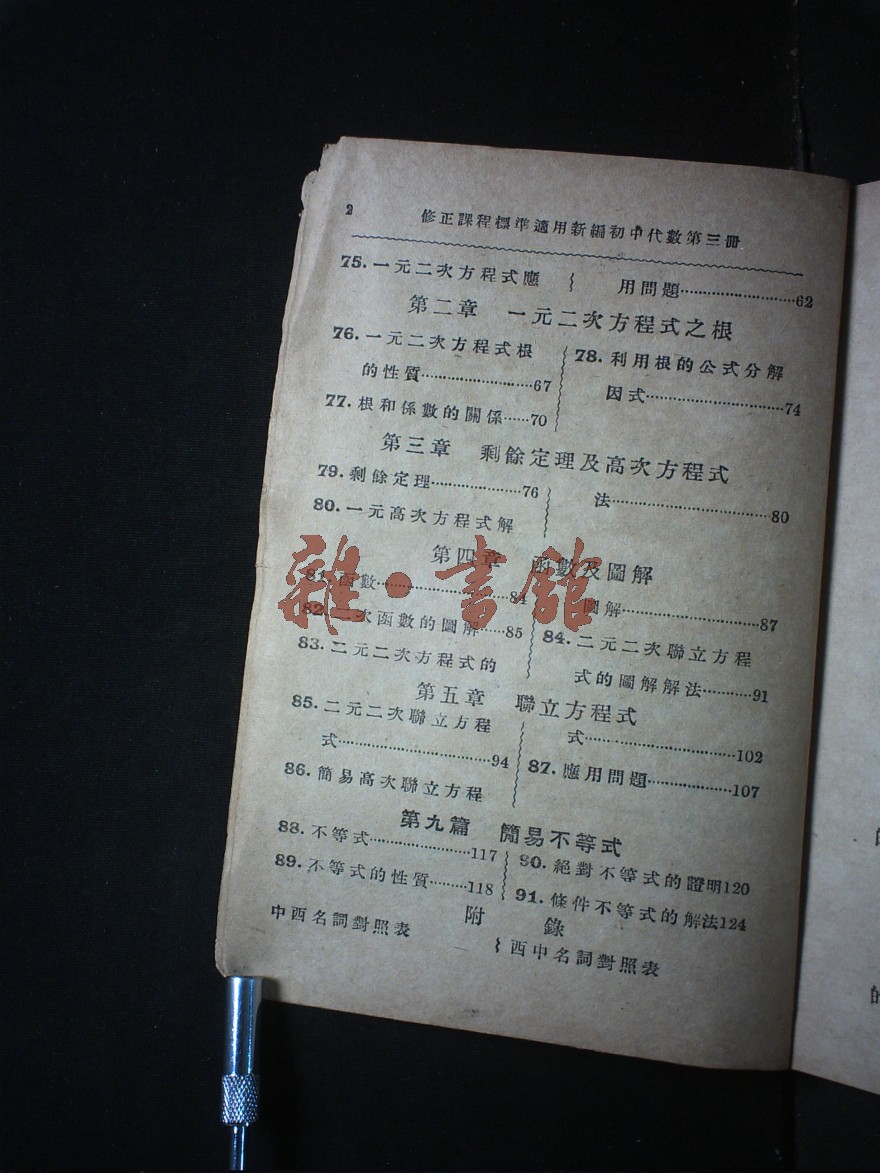 2
修正課程標準適用新編初中代數第三冊
75.一元二次方程式應
用問題……………………62
第二章 一元二次方程式之根
76.一元二次方程式根
的性質……………………67
77.根和係數的關係……70
78.利用根的公式分解
因式………………………74
第三章 剩餘定理及高次方程式
79.剩餘定理………………76
80.一元高次方程式解
法…………………………80
第四章 函數及圖解
81.函數……………………84
82.二次函數的圖解……85
83.二元二次方程式的
圖解………………………87
84.二元二次聯立方程
式的圖解解法…………91
第五章 聯立方程式
85.二元二次聯立方程
式…………………………94
86.簡易高次聯立方程
式…………………………102
87.應用問題………………107
第九篇 簡易不等式
88.不等式…………………117
89.不等式的性質………118
90.絕對不等式的證明120
91.條件不等式的解法124
附 錄
中西名詞對照表
西中名詞對照表
雜·書館
的
的